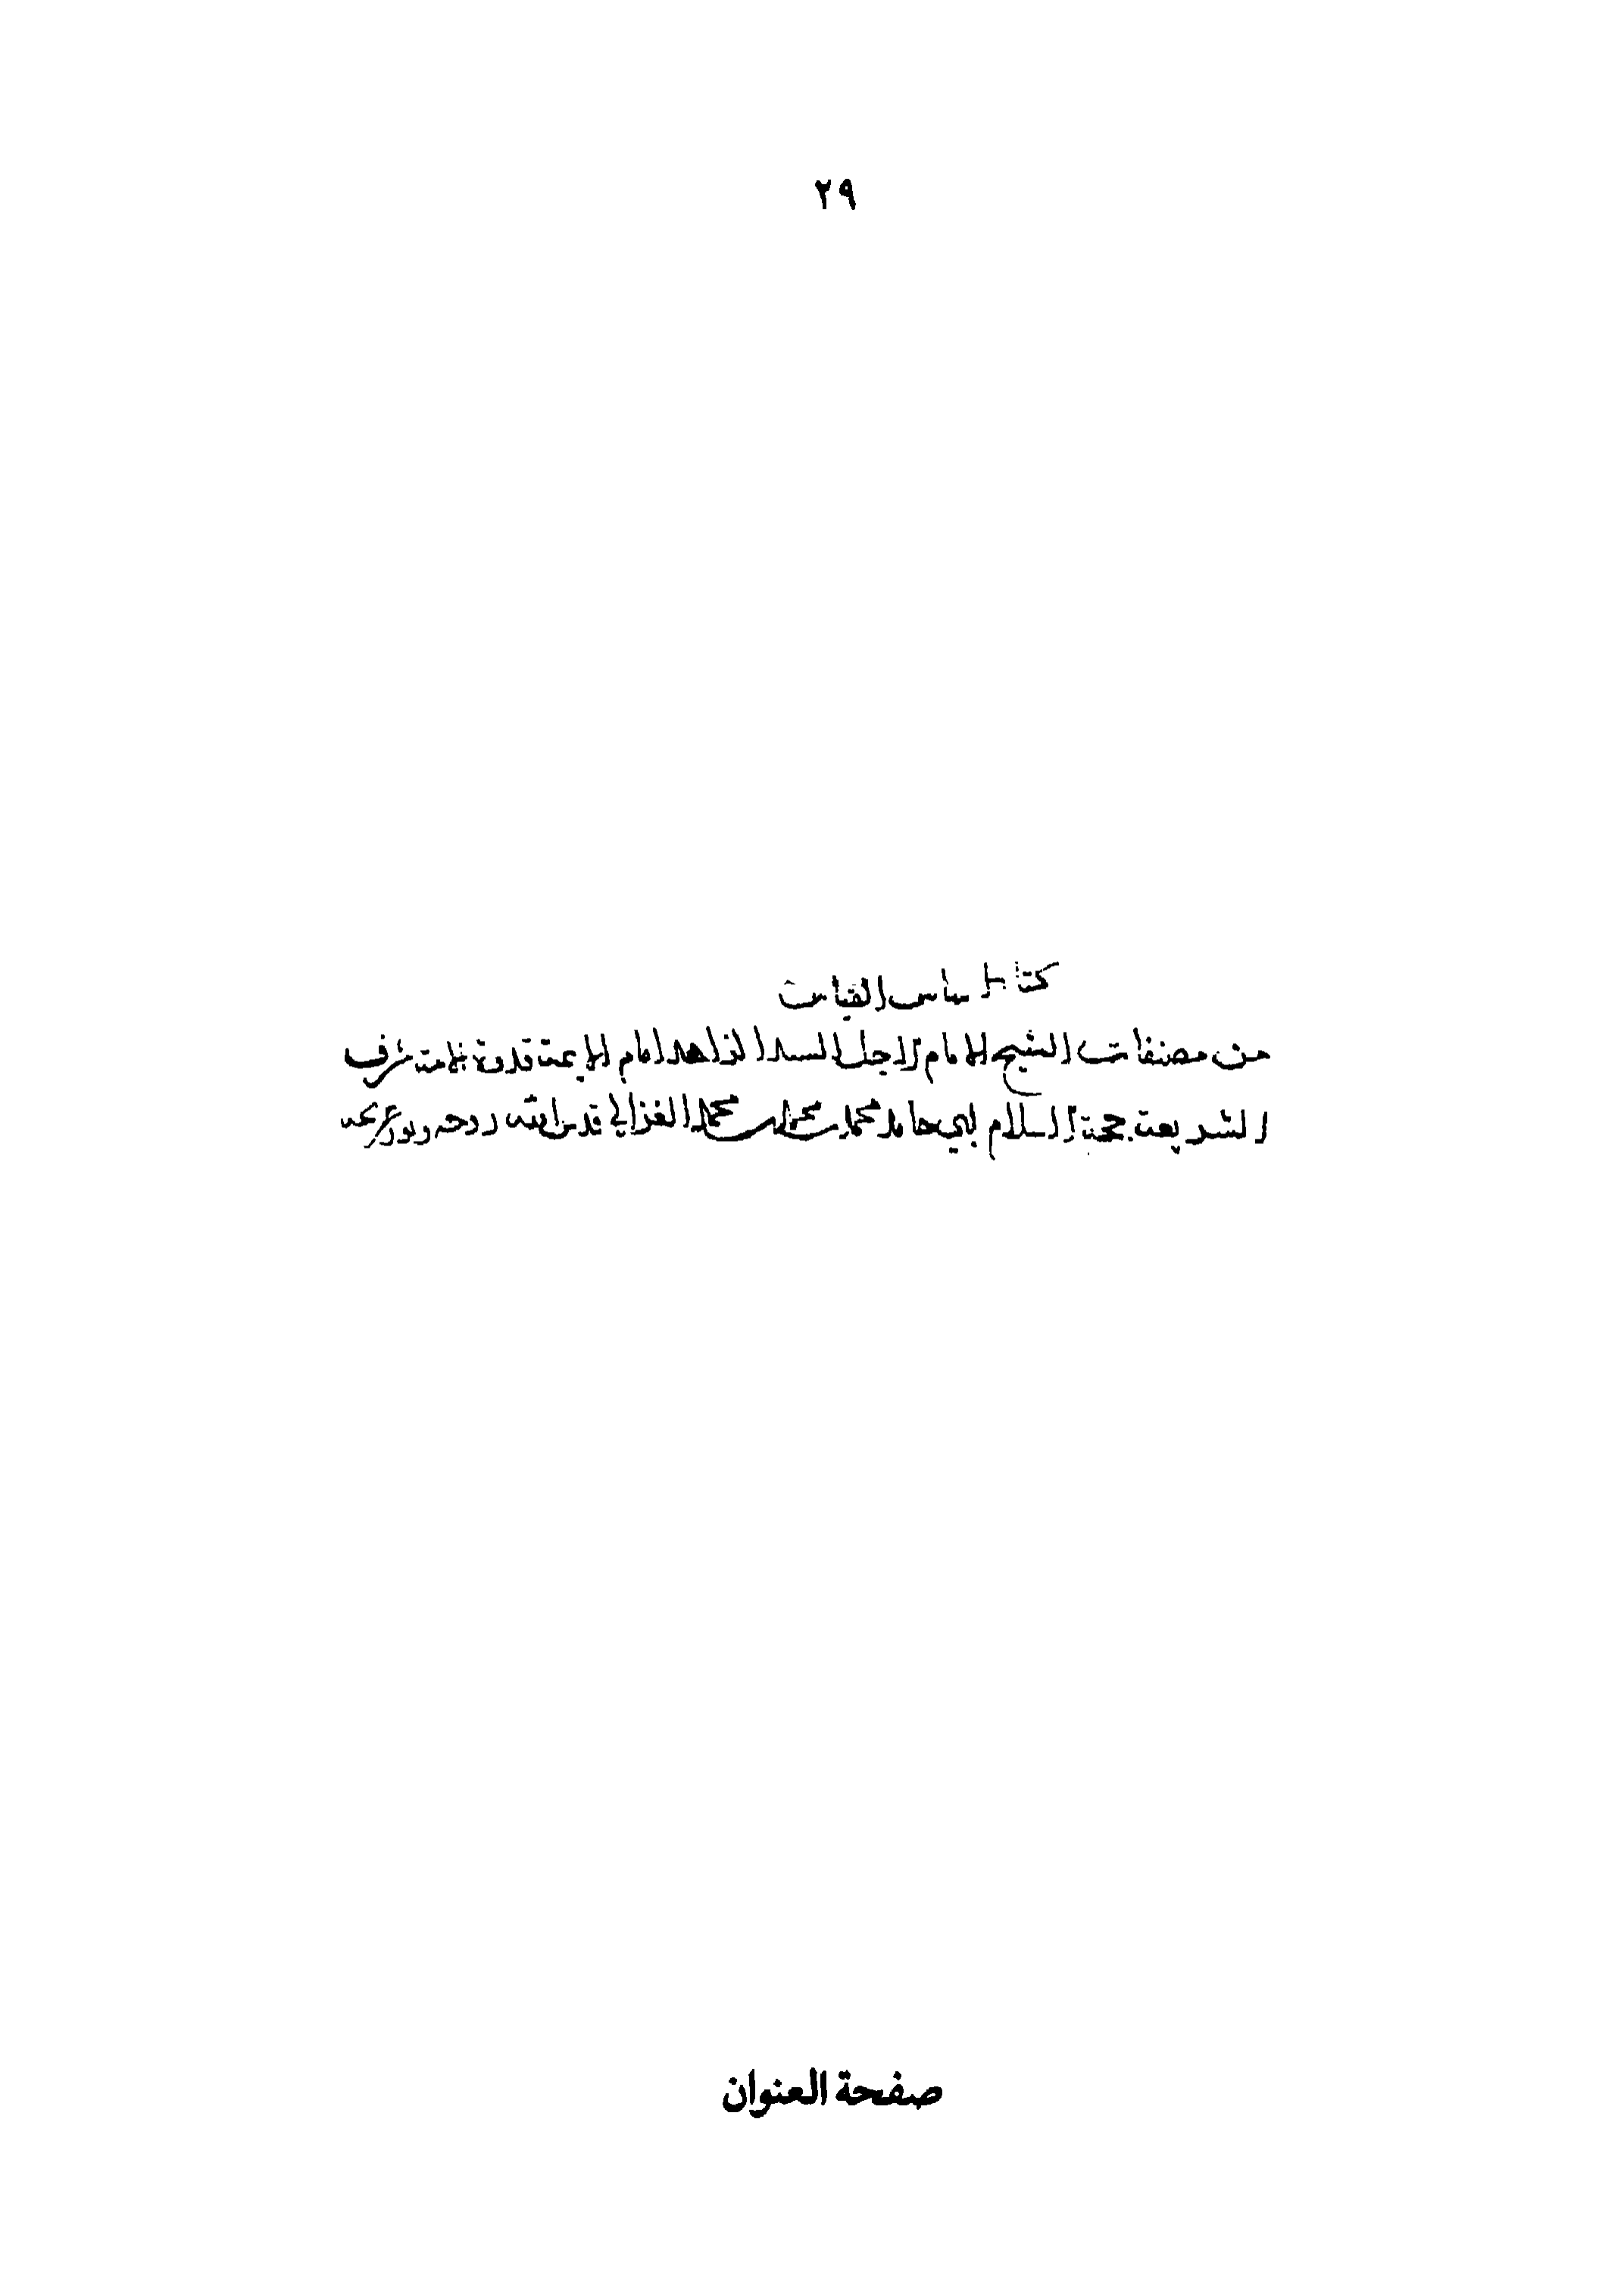 ٢٩
كتاب اساس القياس
من مصنفات الشيخ الامام الاجل السيد الزاهد امام الايمة قدوة الامة شرف
الشريعة حجة الاسلام ابي حامد محمد بن محمد بن محمد الغزالي قدس الله روحه ونور ضريحه
صفحة العنوان